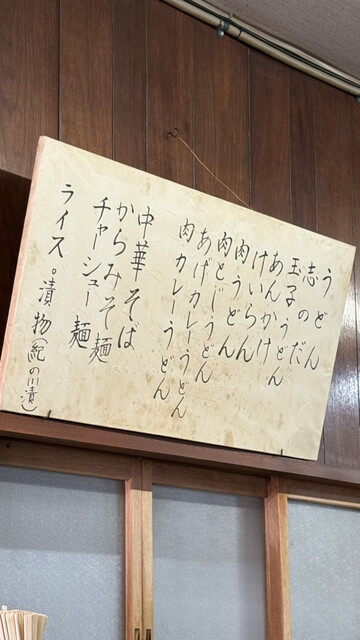 うどん
志のだ
玉子うどん
あんかけ
けいらん
肉うどん
肉とじうどん
あげカレーうどん
肉カレーうどん
中華そば
からみそ麺
チャーシュー麺
ライス。漬物(紀の川漬)